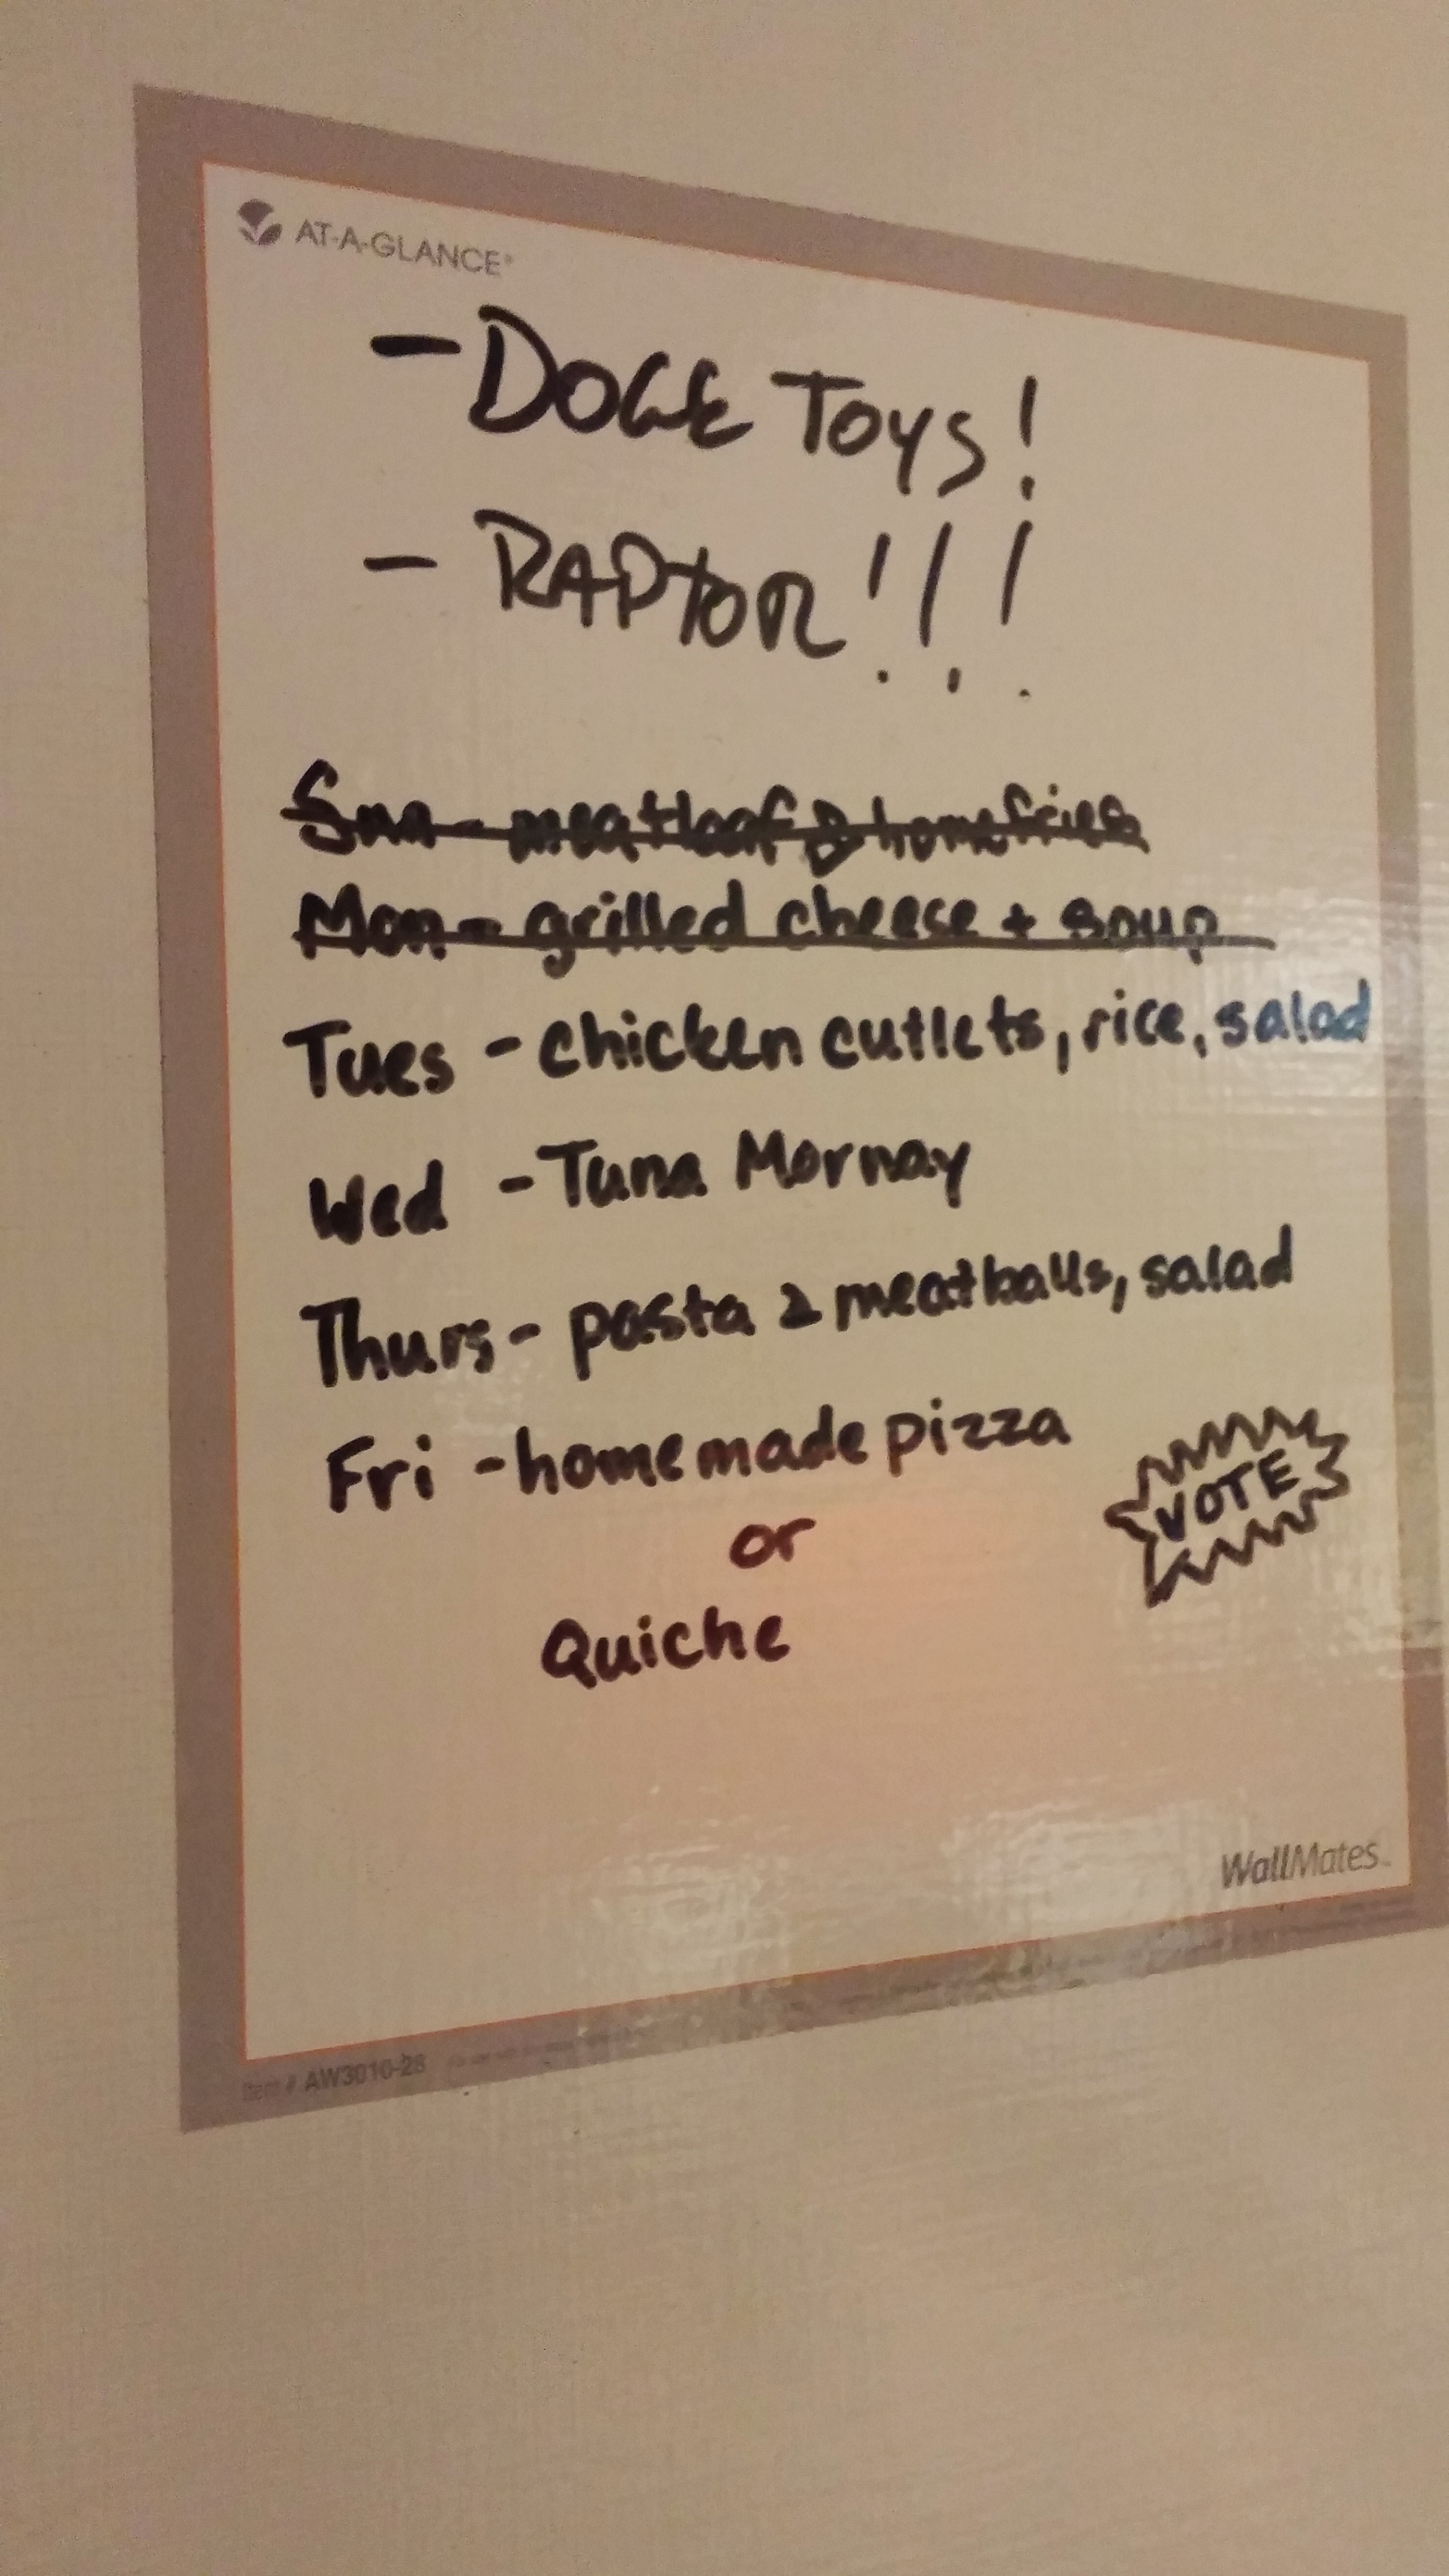 AT-A-GLANCE®
- DOGE TOYS!
- RAPTOR!!!
Sun - meatloaf & homefries
Mon - grilled cheese + soup
Tues - chicken cutlets, rice, salad
Wed - Tuna Mornay
Thurs - pasta & meatballs, salad
Fri - homemade pizza
or
VOTE
Quiche
WallMates™
Item # AW3010-28